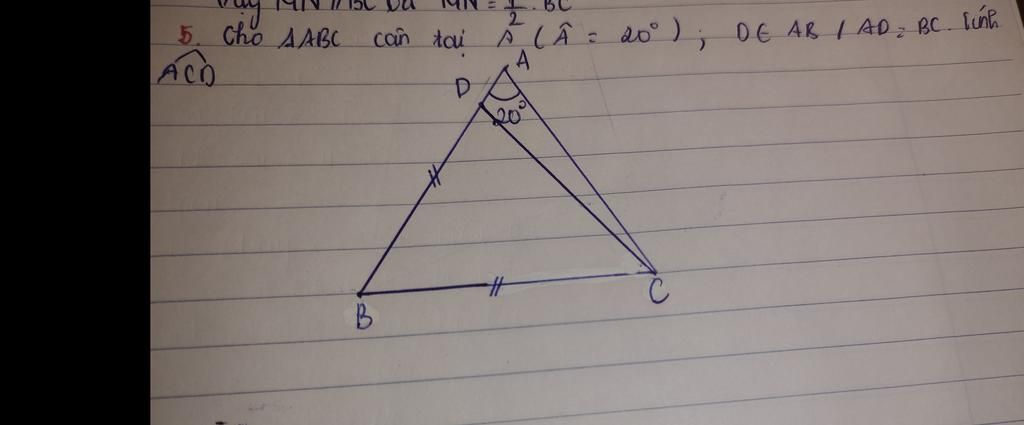 Vậy MN // BC và MN = 1/2 . BC
5. Cho ΔABC cân tại A ( Â = 20° ) ; D ∈ AB / AD = BC. Tính
ACD
A
D
20°
B
C